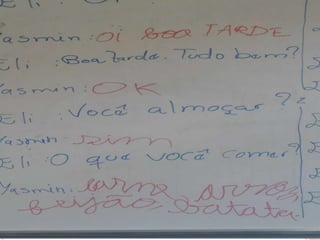 Yasmin: Oi boa TARDE
Eli : Boa tarde. Tudo bem?
Yasmin: OK
Eli : Você almoçar?
Yasmin sim
Eli: O que você comer?
Yasmin: carne arroz
feijão, batata